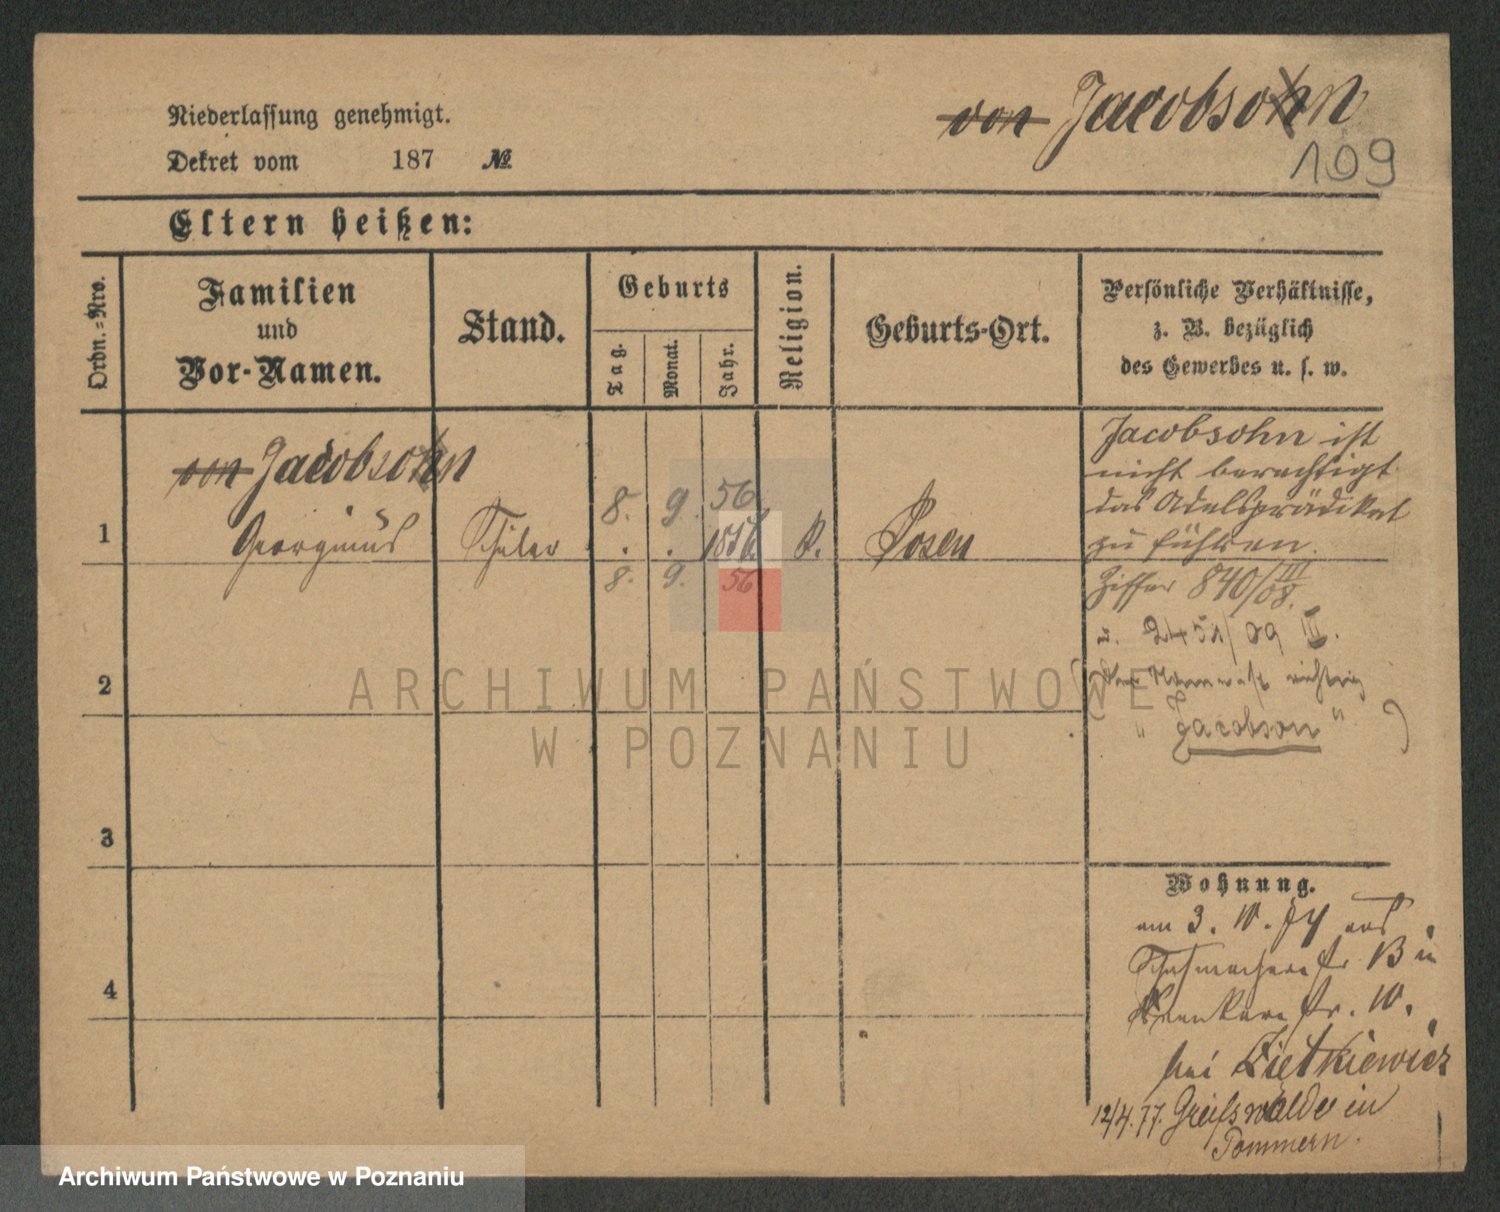 von Jacobsohn
109
Niederlassung genehmigt.
Dekret vom 187 №
Eltern heißen:
Ordn.-Nro.
Familien
und
Vor-Namen.
Stand.
Geburts
Tag.
Monat.
Jahr.
Religion.
Geburts-Ort.
Persönliche Verhältnisse,
z. B. bezüglich
des Gewerbes u. s. w.
von Jacobsohn
8. 9. 56
1 Georginus Schüler . . 1856. k. Posen
8. 9. 56
Jacobsohn ist
nicht berechtigt
das Adelsprädikat
zu führen.
Ziffer 840/III 08.
u. 2451/09 III.
richtig
"Jacobson")
2
3
4
Wohnung.
am 3. 10. 74 aus
Schuhmacherstr 13 in
str. 10.
bei Zietkiewicz
12/4.77. Greifswalde in
Pommern.
ARCHIWUM PAŃSTWOWE
W POZNANIU
Archiwum Państwowe w Poznaniu